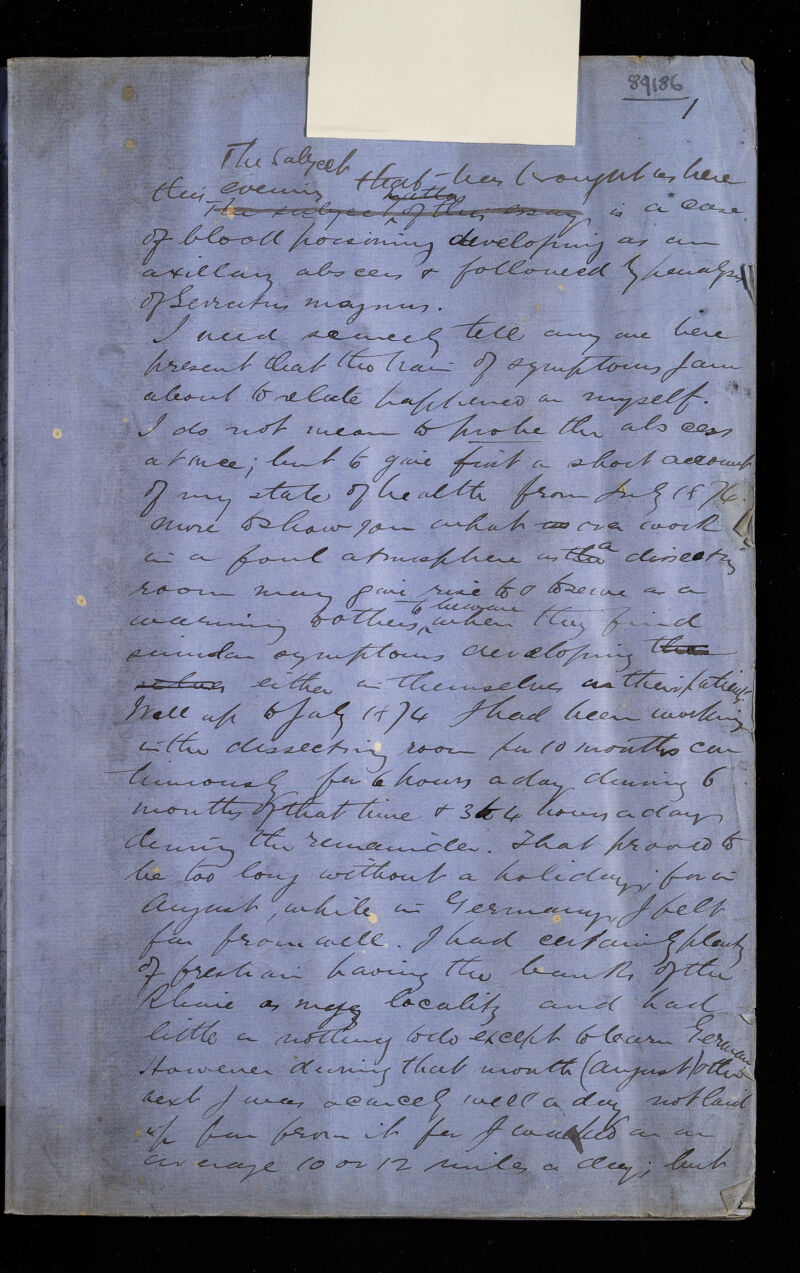 89186
1
The Subject
this evening that has brought us here
matter
The subject of this essay is a case
of blood poisoning developing as an
axillary abscess & followed by paralysis
of Serratus magnus.
I need scarcely tell any one here
present that the train of symptoms I am
about to relate happened on myself.
I do not mean to probe the abscess
at once; but to give first a short account
of my state of health from July 1874.
more to show you what over work
in a foul atmosphere as the a dissecting
room may give rise to & to serve as a
warning to others, to beware when they find
similar symptoms developing them
selves either in themselves or their patients.
Well up to July 1874 I had been working
in the dissecting room for 10 months con
tinuously for 6 hours a day during 6
months of that time & 3 to 4 hours a day
during the remainder. That proved to
be too long without a holiday; for in
August, while in Germany, I felt
far from well. I had certainly plenty
of fresh air having the banks of the
Rhine as my locality and had
little or nothing to do except to learn German
However during that month (August) & the
next I was scarcely well a day not laid
up far from it for I walked on an
average 10 or 12 miles a day; but